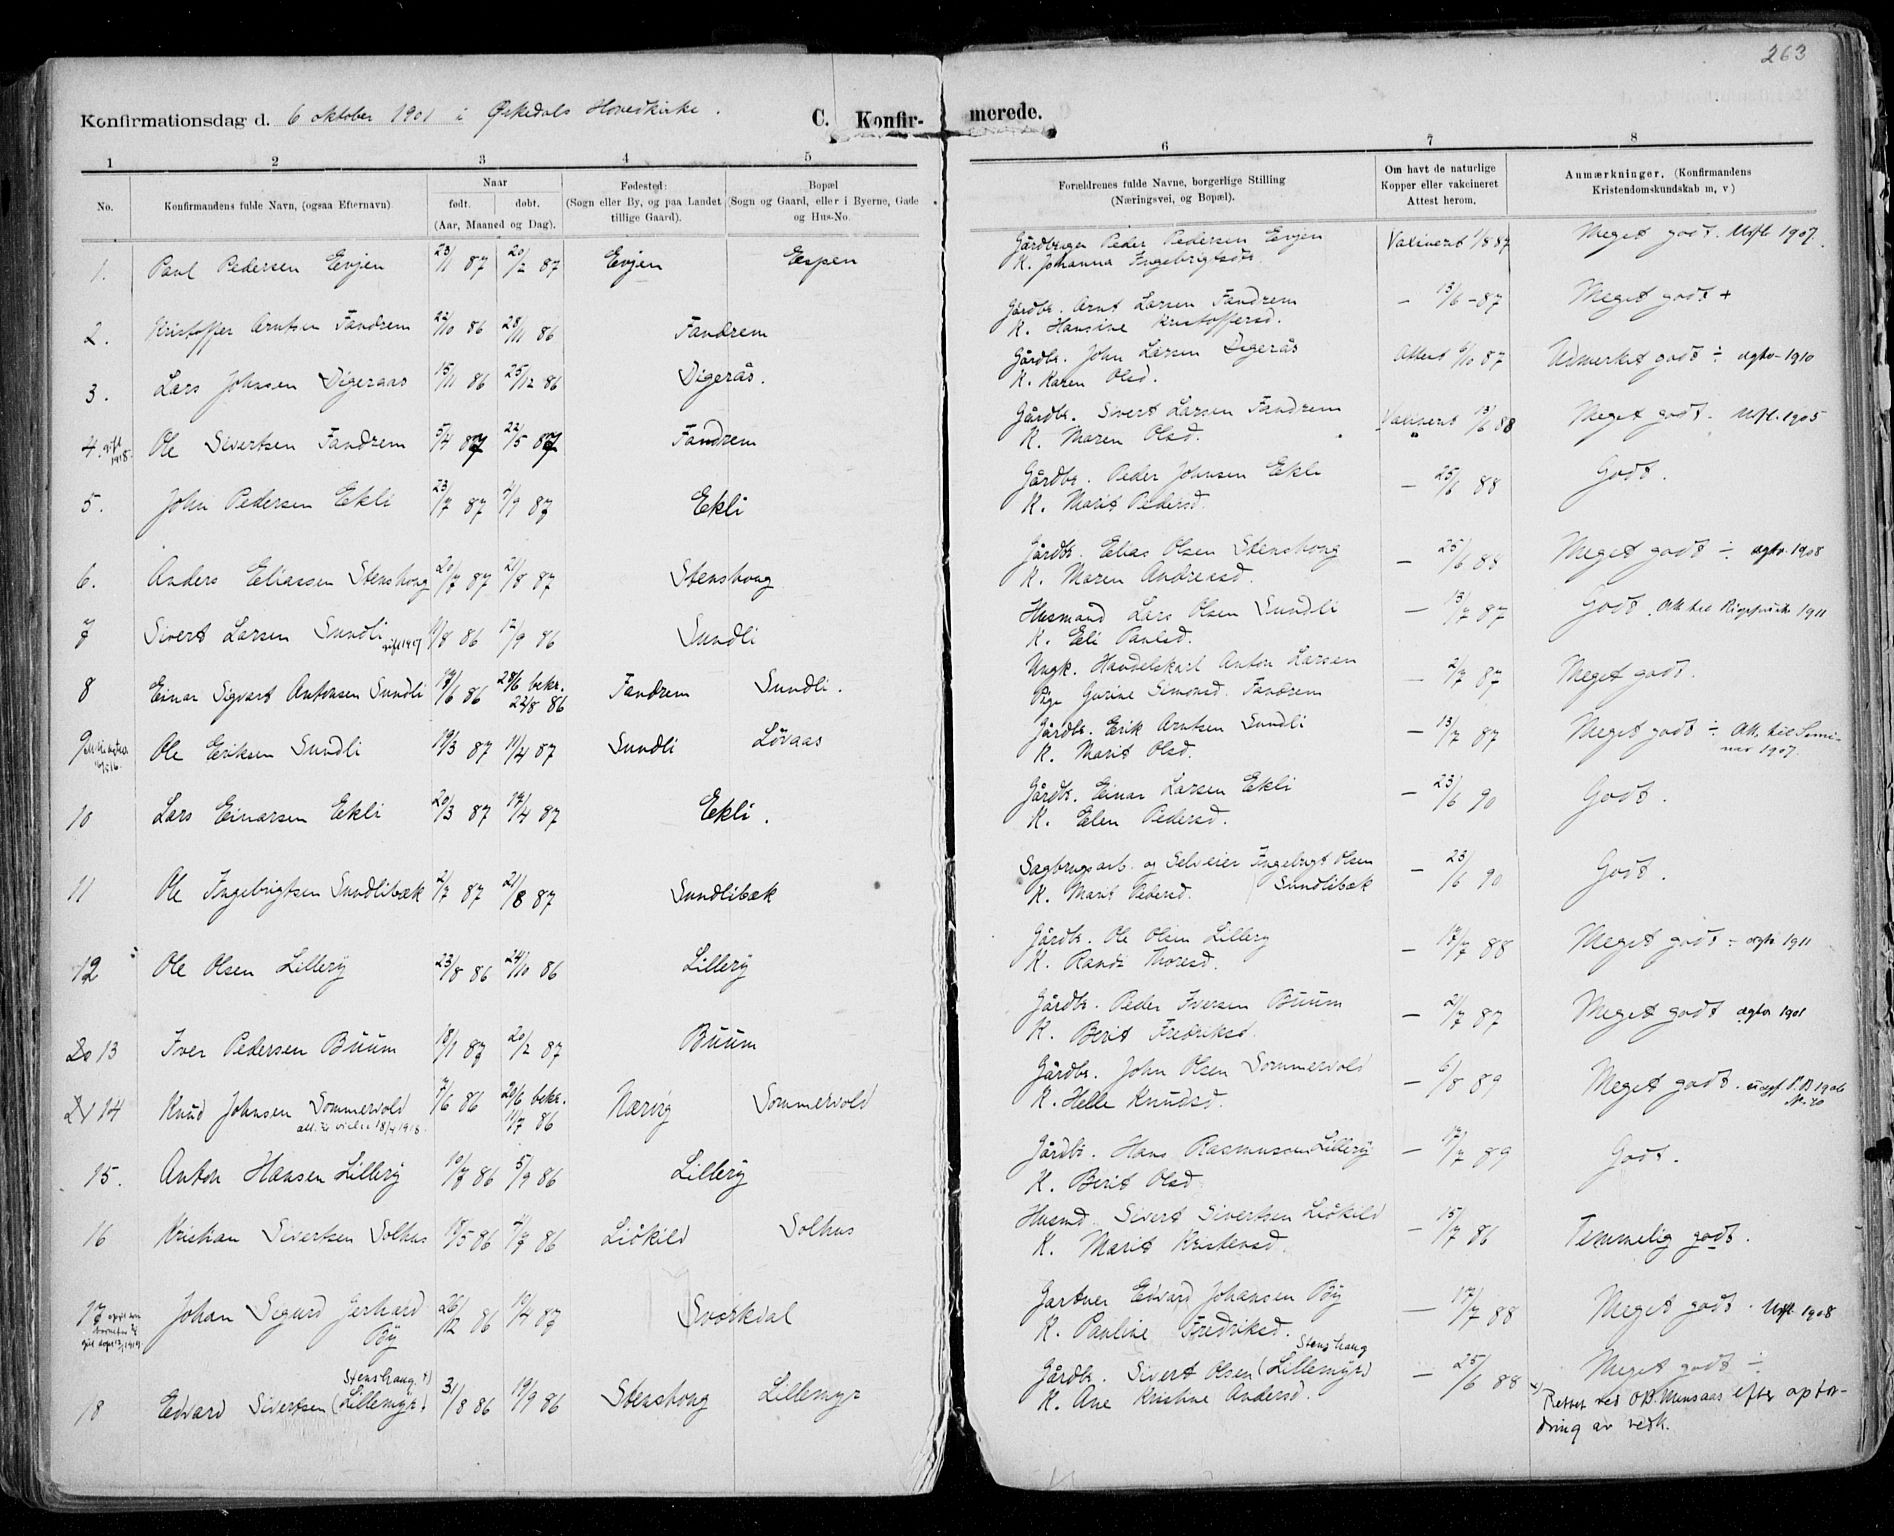 263
Konfirmationsdag d. 6 oktober 1901 i Ørkedals Hovedkirke.
C. Konfir- merede.
1 2 3 4 5 6 7 8
No.
Konfirmandens fulde Navn, (ogsaa Efternavn)
Naar
født. døbt.
(Aar, Maaned og Dag).
Fødested:
(Sogn eller By, og paa Landet
tillige Gaard).
Bopæl
(Sogn og Gaard, eller i Byerne, Gade
og Hus-No.
Forældrenes fulde Navne, borgerlige Stilling
(Næringsvei, og Bopæl).
Om havt de naturlige
Kopper eller vakcineret
Attest herom.
Anmærkninger. (Konfirmandens
Kristendomskundskab m, v)
1. Paul Pedersen Evjen 23/1 87 20/2 87 Evjen Espen
Gårdbruger Peder Pedersen Evjen
K. Johanna Ingebrigtsdr.
Vakineret 1/8 87 Meget godt. Utfl. 1907.
2. Kristoffer Arntsen Fandrem 22/10 86 28/11 86 Fandrem
Gårdbr. Arnt Larsen Fandrem
K. Hansine Kristoffersd.
— 13/6 - 87 Meget godt +
3. Lars Johnsen Digeraas 15/11 86 25/12 86 Digerås.
Gårdbr. John Larsen Digerås
K. Karen Olsd.
Attest 6/10 87 Udmerket godt ÷ agtv. 1910
4. gift 1918. Ole Sivertsen Fandrem 5/4 87 22/5 87 Fandrem
Gårdbr. Sivert Larsen Fandrem
K. Maren Olsd.
Vakineret 13/6 88 Meget godt. Utfl. 1905
5. John Pedersen Ekli 23/7 87 4/9 87 Ekli
Gårdbr. Peder Johnsen Ekli
K. Marit Pedersd.
— 25/6 88 Godt.
6. Anders Eliassen Stenshoug 20/7 87 21/8 87 Stenshoug
Gårdbr. Elias Olsen Stenshoug
K. Maren Andersd.
— 25/6 88 Meget godt ÷ agtv. 1908
7 Sivert Larsen Sundli 11/8 86 12/9 86 Sundli
Husmand Lars Olsen Sundli
K. Eli Paulsd.
— 13/7 87 Godt. 1911
8 Einar Sigvart Antonsen Sundli 19/6 86 28/6 bekr. 22/8 86 Fandrem Sundli.
Ungk. Handelskarl Anton Larsen
Pige Gurine Simonsd. Fandrem
— 2/7 87 Meget godt.
9 Ole Eriksen Sundli 19/3 87 11/4 87 Sundli Løvaas
Gårdbr. Erik Arntsen Sundli
K. Marit Olsd.
— 13/7 87 Meget godt ÷ Att. til Semi-
nar 1907.
10 Lars Einarsen Ekli 20/3 87 19/4 87 Ekli.
Gårdb. Einar Larsen Ekli
K. Elen Pedersd.
— 23/6 90 Godt.
11 Ole Ingebrigtsen Sundlibæk 2/7 87 21/8 87 Sundlibæk
Sagbrugsarb. og Selveier Ingebrigt Olsen
K. Marit Pedersd. Sundlibæk
— 23/6 90 Godt.
12 Ole Olsen Lillery 23/8 86 24/10 86 Lillery
Gårdb. Ole Olsen Lillery
K. Randi Thoresd.
— 17/7 88 Meget godt ÷ agtv. 1911
13 Iver Pedersen Buum 18/1 87 20/2 87 Buum
Gårdb. Peder Iversen Buum
K. Berit Fredriksd.
— 2/7 87 Meget godt agtv. 1901
14 Knud Johnsen Sommervold 7/6 86 20/6 bekr. 11/7 86 Nærvig Sommervold
att. til vielse 18/4 1918.
Gårdbr. John Olsen Sommervold
K. Helle Knudsd.
— 6/8 89 Meget godt. P.B. 1906
15. Anton Hansen Lillery 10/7 86 5/9 86 Lillery
Gårdb. Hans Rasmussen Lillery
K. Berit Olsd.
— 17/7 89 Godt.
16 Kristian Sivertsen Solhus 18/5 86 11/7 86 Liøkild Solhus
Husmd. Sivert Sivertsen Liøkild
K. Marit Kristensd.
— 15/7 86 Temmelig godt.
17 Johan Sigurd Gerhard
By 26/12 86 19/4 87 Svorkdal
Gartner Edvard Johansen By
K. Pauline Fredriksd.
— 17/7 88 Meget godt. Utfl. 1908
18 Edvard Sivertsen (Lillemyr) Stenshaug 31/8 86 19/9 86 Stenshoug Lillemyr
Stenshaug
Gårdb. Sivert Olsen (Lillemyr)
K. Ane Kristine Andersd.
— 25/6 88 Meget godt ÷
Rettet ved O.B. Mensaas efter opfor-
dring av vedk.